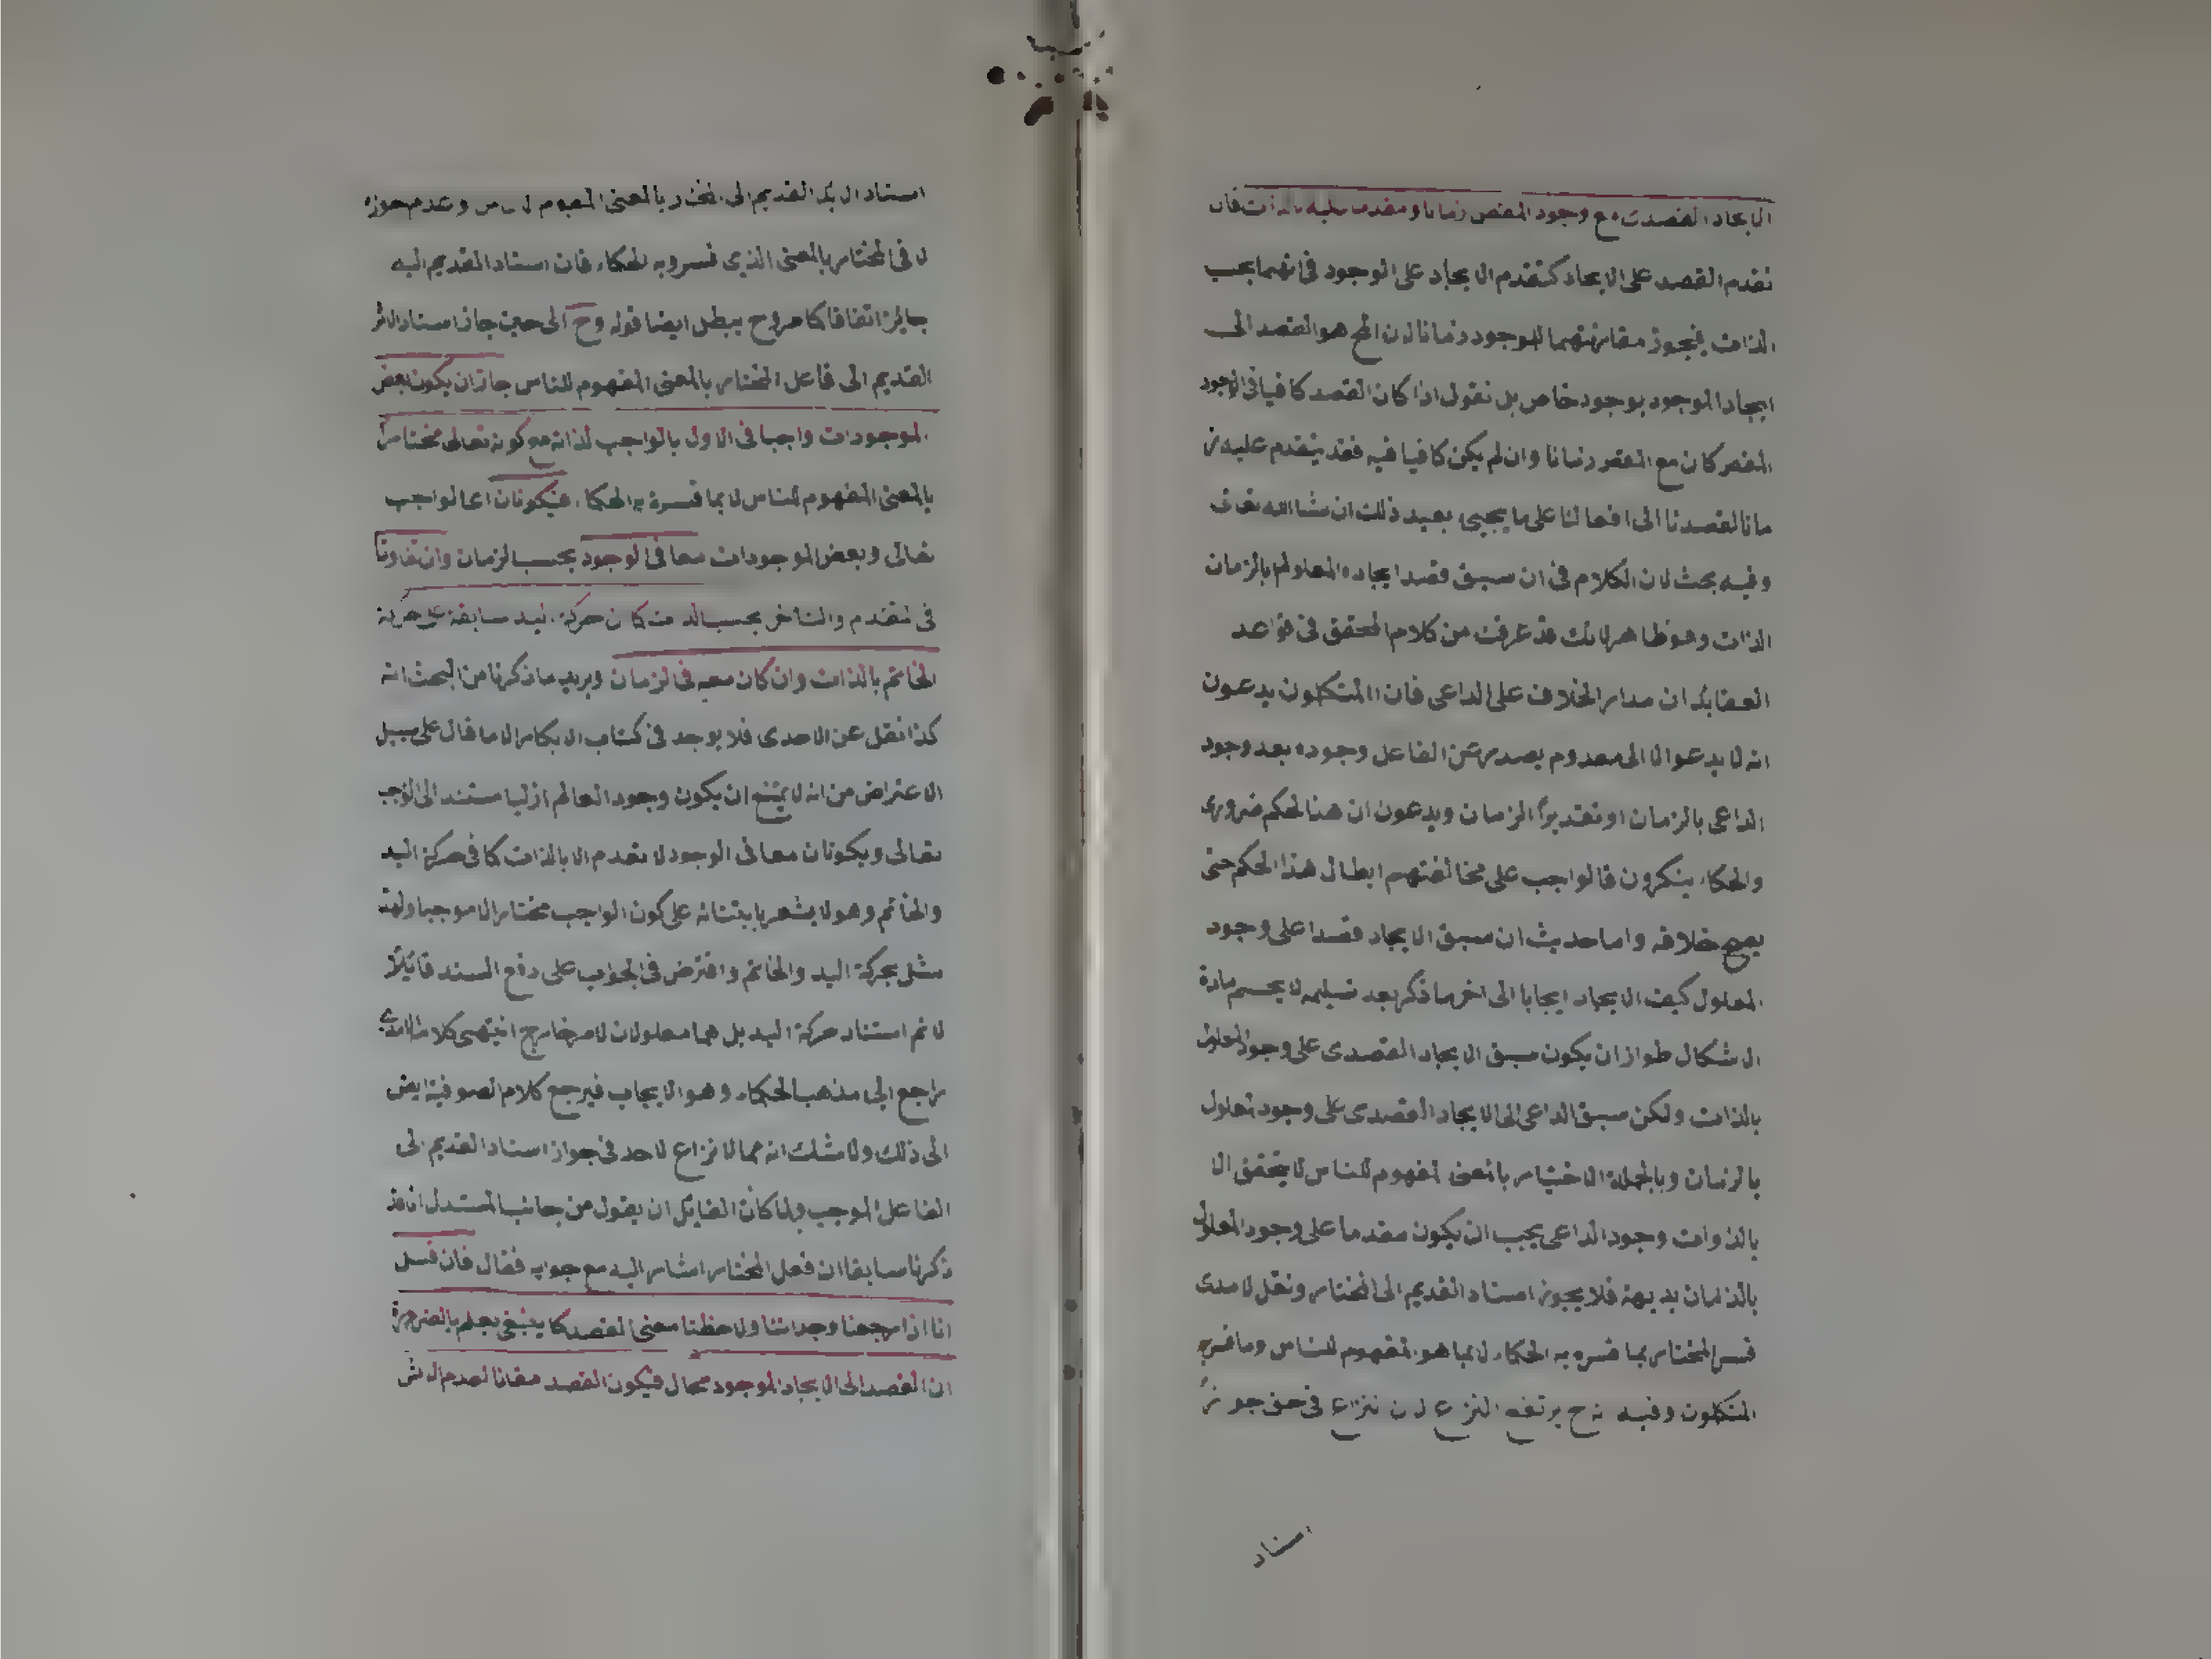 الايجاد القصدى مع وجود المقص زمانا ومقدما عليه بالذات فان
تقدم القصد على الايجاد كتقدم الايجاد على الوجود فى انهما بحسب
الذات فيجوز مقارنتهما للوجود زمانا لان المح هو القصد الى
ايجاد الموجود بوجود خاص بل نقول اذا كان القصد كافيا فى الوجود
المقص كان مع المقص زمانا وان لم يكن كافيا فيه فقد يتقدم عليه ز
مانا لقصدنا الى افعالنا على ما يجيى بعيد ذلك ان شا الله تعالى
وفيه بحث لان الكلام فى ان سبق قصد ايجاده المعلول بالزمان
الذات وهو ظاهر لانك قد عرفت من كلام المحقق فى قواعد
العقايد ان مدار الخلاف على الداعى فان المتكلون يدعون
انه لا يدعو الا الى معدوم يصدر عن الفاعل وجوده بعد وجود
الداعى بالزمان او تقدير الزمان ويدعون ان هذا الحكم ضرورى
والحكاء ينكرون فالواجب على مخالفتهم ابطال هذا الحكم حتى
يصح خلافه واما حديث ان سبق الايجاد قصدا على وجود
المعلول كيف الايجاد ايجابا الى اخر ما ذكر بعد تسليمه لا يحسم مادة
الاشكال طواز ان يكون سبق الايجاد القصدى على وجود المعلول
بالذات ولكن سبق الداعى الى الايجاد القصدى على وجود المعلول
بالزمان وبالجملة الاختيار بالمعنى المفهوم للناس لا يتحقق الا
بالذوات وجود الداعى يجب ان يكون مقدما على وجود المعلول
بالذمان بديهة فلا يجوز استناد القديم الى المختار ونقل لامدى
فسر المختار بما فسره به الحكاء لا بما هو المفهوم للناس وما
المتكلون وفيه نه ح يرتفع النزاع لان النزاع فى
استناد
استناد القديم الى المختار بالمعنى المفهوم للناس وعدم جوازه
لا فى المختار بالمعنى الذى فسروبه الحكاء فان استناد القديم اليه
جايز اتفاقا كا مر وح يبطل ايضا قوله وح الى حين جاز استناد الاثر
القديم الى فاعل المختار بالمعنى المفهوم للناس جاز ان يكون بعض
الموجودات واجبا فى الاول بالواجب لذاته مع كونه تعالى مختارا
بالمعنى المفهوم للناس لا بما فسره به الحكاء فيكونان اعا لواجب
تعالى وبعض الموجودات معا فى الوجود بحسب الزمان وان تفاوتا
فى التقدم والتاخر بحسب الذات كا ن حركة اليد سابقة على حركة
الخاتم بالذات وان كان معه فى الزمان ويريد ما ذكرنا من البحث انه
كذا نقل عن الامدى فلا يوجد فى كتاب الابكار الا ما قال على سبيل
الاعتراض من انه لا يمتنع ان يكون وجود العالم ازليا مستند الى الواجب
تعالى ويكونان معا فى الوجود لا تقدم الا بالذات كا فى حركة اليد
والخاتم وهو لا يشعر بابتنائه على كون الواجب مختار الا موجبا ولهذا
مثل بحركة اليد والخاتم وافترض فى الجواب على دفع السند قايلا
لا نم استناد حركة اليد بل هما معلولان لامر خارج انتهى كلام الامدى
راجع الى مذهب الحكاء وهو الايجاب فيرجع كلام الصوفية ايض
الى ذلك ولا شك انه مما لا نزاع لاحد فى جواز استناد القديم الى
الفاعل الموجب ولما كان القايل ان يقول من جانب المستدل انا قد
ذكرنا سابقا ان فعل المختار اشار اليه مع جوابه فقال فان قيل
انا اذا رجعنا وجداننا ولاحظنا معنى القصد كا ينبغى نعلم بالضرورة
ان القصد الى الايجاد الموجود محال فيكون القصد مقارنا لعدم الاثر